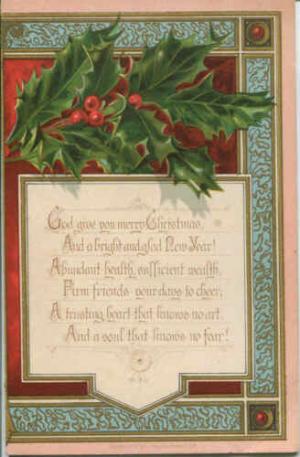 God give you merry Christmas,
And a bright and glad New Year!
Abundant health, sufficient wealth,
Firm friends your days to cheer;
A trusting heart that knows no art
And a soul that knows no fear!